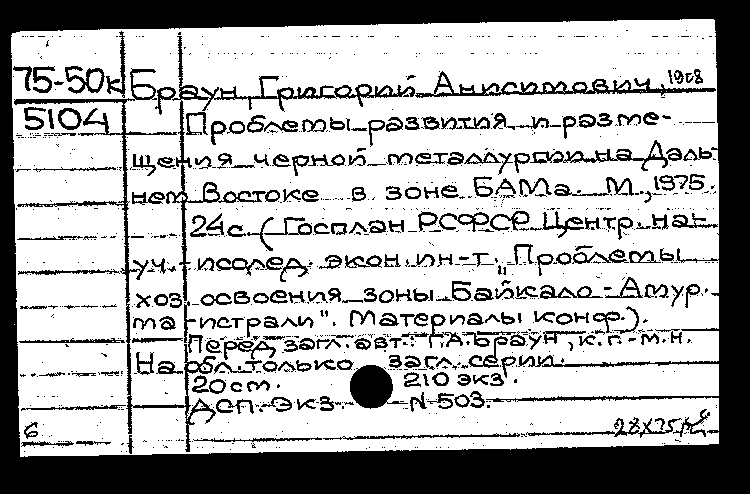 75-50к
5104
Браун, Григорий Анисимович, 1908
Проблемы развития и разме-
щения черной металлургии на Даль-
нем Востоке в зоне БАМа. М., 1975.
24с. (Госплан РСФСР Центр. на-
уч.-исслед. экон. ин-т. „Проблемы
хоз. освоения зоны Байкало-Амур.
магистрали". Материалы конф.).
Перед загл. авт.: Г.А.Браун, к.г.-м.н.
На обл. только загл. серии.
20см. 210 экз.
ДСП. Экз. N 503.
6